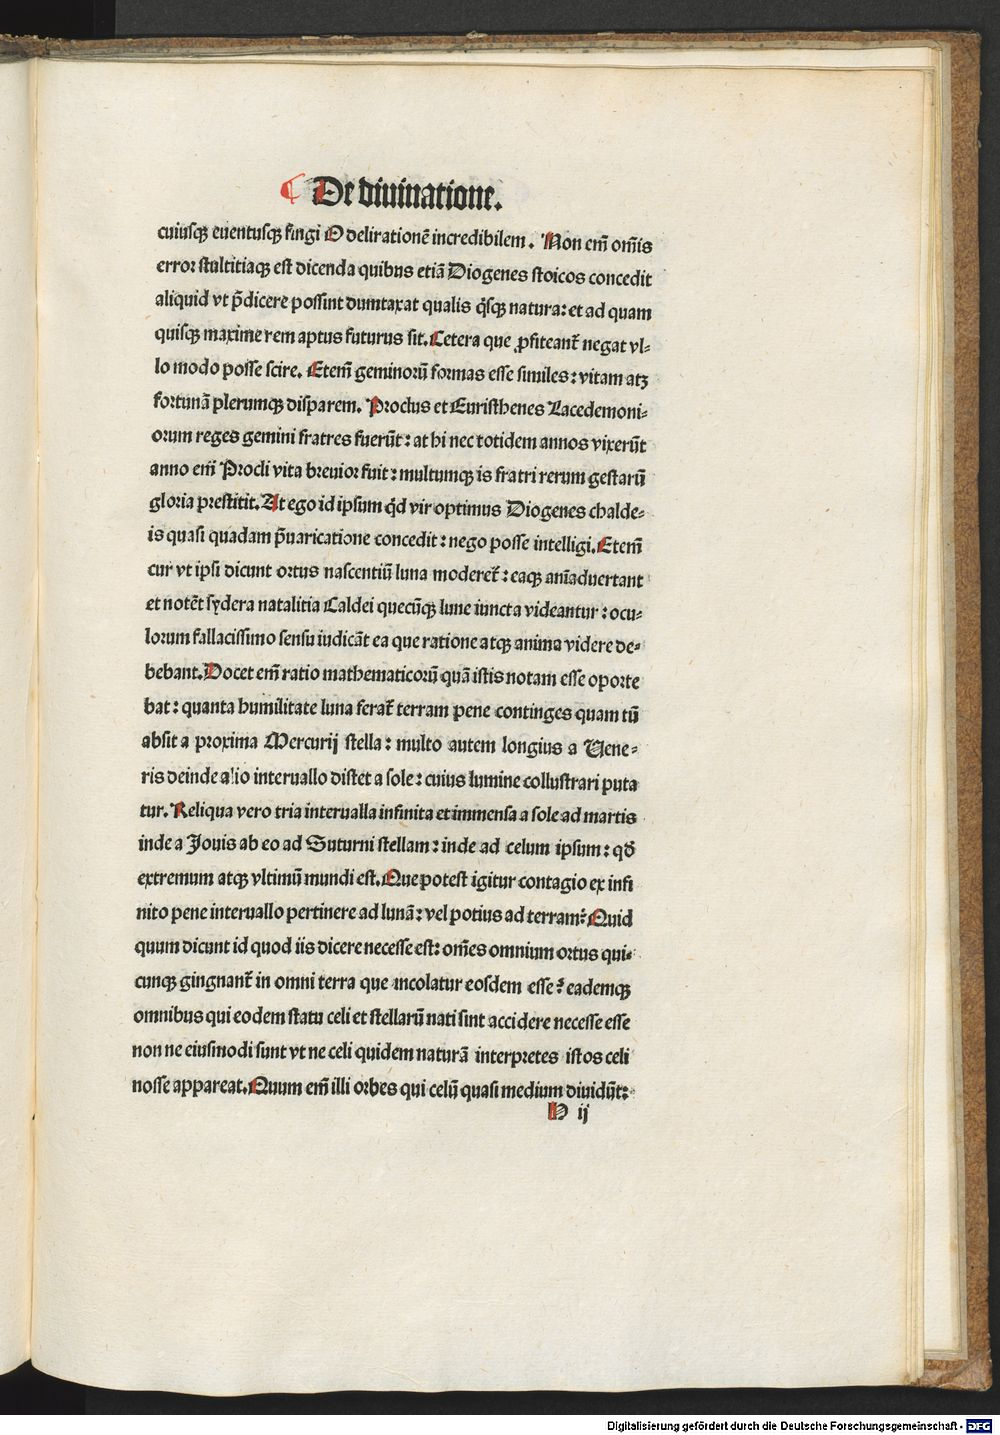 ¶ De diuinatione.
cuiusqꝫ euentusqꝫ fingi O delirationē incredibilem . Non em̄ om̄is
error stultitiaqꝫ est dicenda quibus etiā Diogenes stoicos concedit
aliquid vt p̄dicere possint dumtaxat qualis q̄sqꝫ natura: et ad quam
quisqꝫ maxime rem aptus futurus sit. Cetera que ꝓfiteant᷑ negat vl⸗
lo modo posse scire. Etem̄ geminorū formas esse similes: vitam atꝫ
fortunā plerumqꝫ disparem. Proclus et Euristhenes Lacedemoni⸗
orum reges gemini fratres fuerūt: at hi nec totidem annos vixerūt
anno em̄ Procli vita breuior fuit: multumqꝫ is fratri rerum gestarū
gloria prestitit. At ego id ipsum q̄d vir optimus Diogenes chalde⸗
is quasi quadam p̄uaricatione concedit: nego posse intelligi. Etem̄
cur vt ipsi dicunt ortus nascentiū luna moderet᷑: eaqꝫ anīaduertant
et notēt sydera natalitia Caldei quecūqꝫ lune iuncta videantur: ocu⸗
lorum fallacissimo sensu iudicāt ea que ratione atqꝫ anima videre de⸗
bebant. Docet em̄ ratio mathematicorū quā istis notam esse oporte
bat: quanta humilitate luna ferat᷑ terram pene continges quam tū
absit a proxima Mercurij stella: multo autem longius a Uene⸗
ris deinde alio interuallo distet a sole: cuius lumine collustrari puta
tur. Reliqua vero tria interualla infinita et immensa a sole ad martis
inde a Jouis ab eo ad Suturni stellam: inde ad celum ipsum: qd̄
extremum atqꝫ vltimū mundi est. Que potest igitur contagio ex infi
nito pene interuallo pertinere ad lunā: vel potius ad terram? Quid
quum dicunt id quod iis dicere necesse est: om̄es omnium ortus qui⸗
cunqꝫ gingnant᷑ in omni terra que incolatur eosdem esse? eademqꝫ
omnibus qui eodem statu celi et stellarū nati sint accidere necesse esse
non ne eiusmodi sunt vt ne celi quidem naturā interpretes istos celi
nosse appareat. Quum em̄ illi orbes qui celū quasi medium diuidūt:
h ij
Digitalisierung gefördert durch die Deutsche Forschungsgemeinschaft - DFG